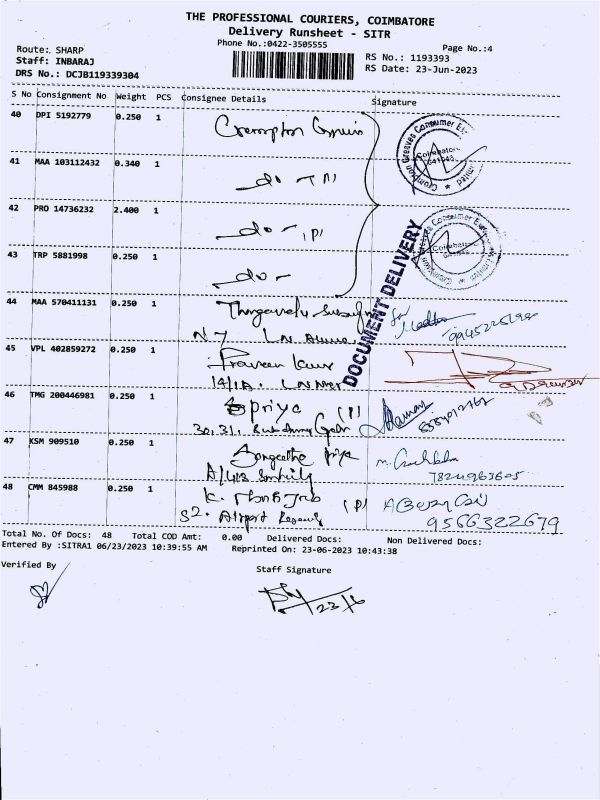 THE PROFESSIONAL COURIERS, COIMBATORE
Delivery Runsheet - SITR
Phone No.:0422-3505555
Page No.:4
Route: SHARP
Staff: INBARAJ
DRS No.: DCJB119339304
RS No.: 1193393
RS Date: 23-Jun-2023
S No Consignment No Weight PCS Consignee Details Signature
40 DPI 5192779 0.250 1 Crompton
41 MAA 103112432 0.340 1 do
42 PRO 14736232 2.400 1 do
43 TRP 5881998 0.250 1 do
Crompton Greaves Consumer Limited
Coimbatore
DOCUMENT DELIVERY
44 MAA 570411131 0.250 1
45 VPL 402859272 0.250 1 Praveen
14/1A.
46 TMG 200446981 0.250 1 priya (P)
30, 31,
47 KSM 909510 0.250 1 Sangeetha Priya
48 CMM 845988 0.250 1 K. (P)
52. Airport
9566322679
Total No. Of Docs: 48 Total COD Amt: 0.00 Delivered Docs: Non Delivered Docs:
Entered By :SITRA1 06/23/2023 10:39:55 AM Reprinted On: 23-06-2023 10:43:38
Verified By
Staff Signature
23/6